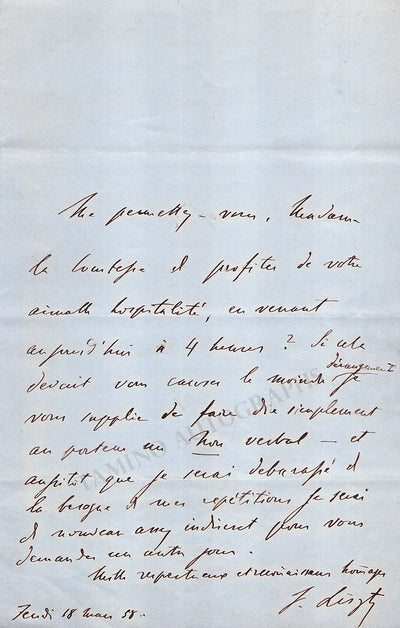 Me permettez-vous, Madame
la Comtesse de profiter de votre
aimable hospitalité, en venant
aujourd'hui à 4 heures? Si cela
dérangement
devait vous causer le moindre je
vous supplie de faire dire simplement
au porteur un Non verbal – et
aussitôt que je serai débarassé de
la besogne de mes répétitions je serai
de nouveau assez indiscret pour vous
demander un autre jour.
Mille respectueux et reconnaissans hommages
F. Liszt
Jeudi 18 mars 58.
TAMINO AUTOGRAPHS